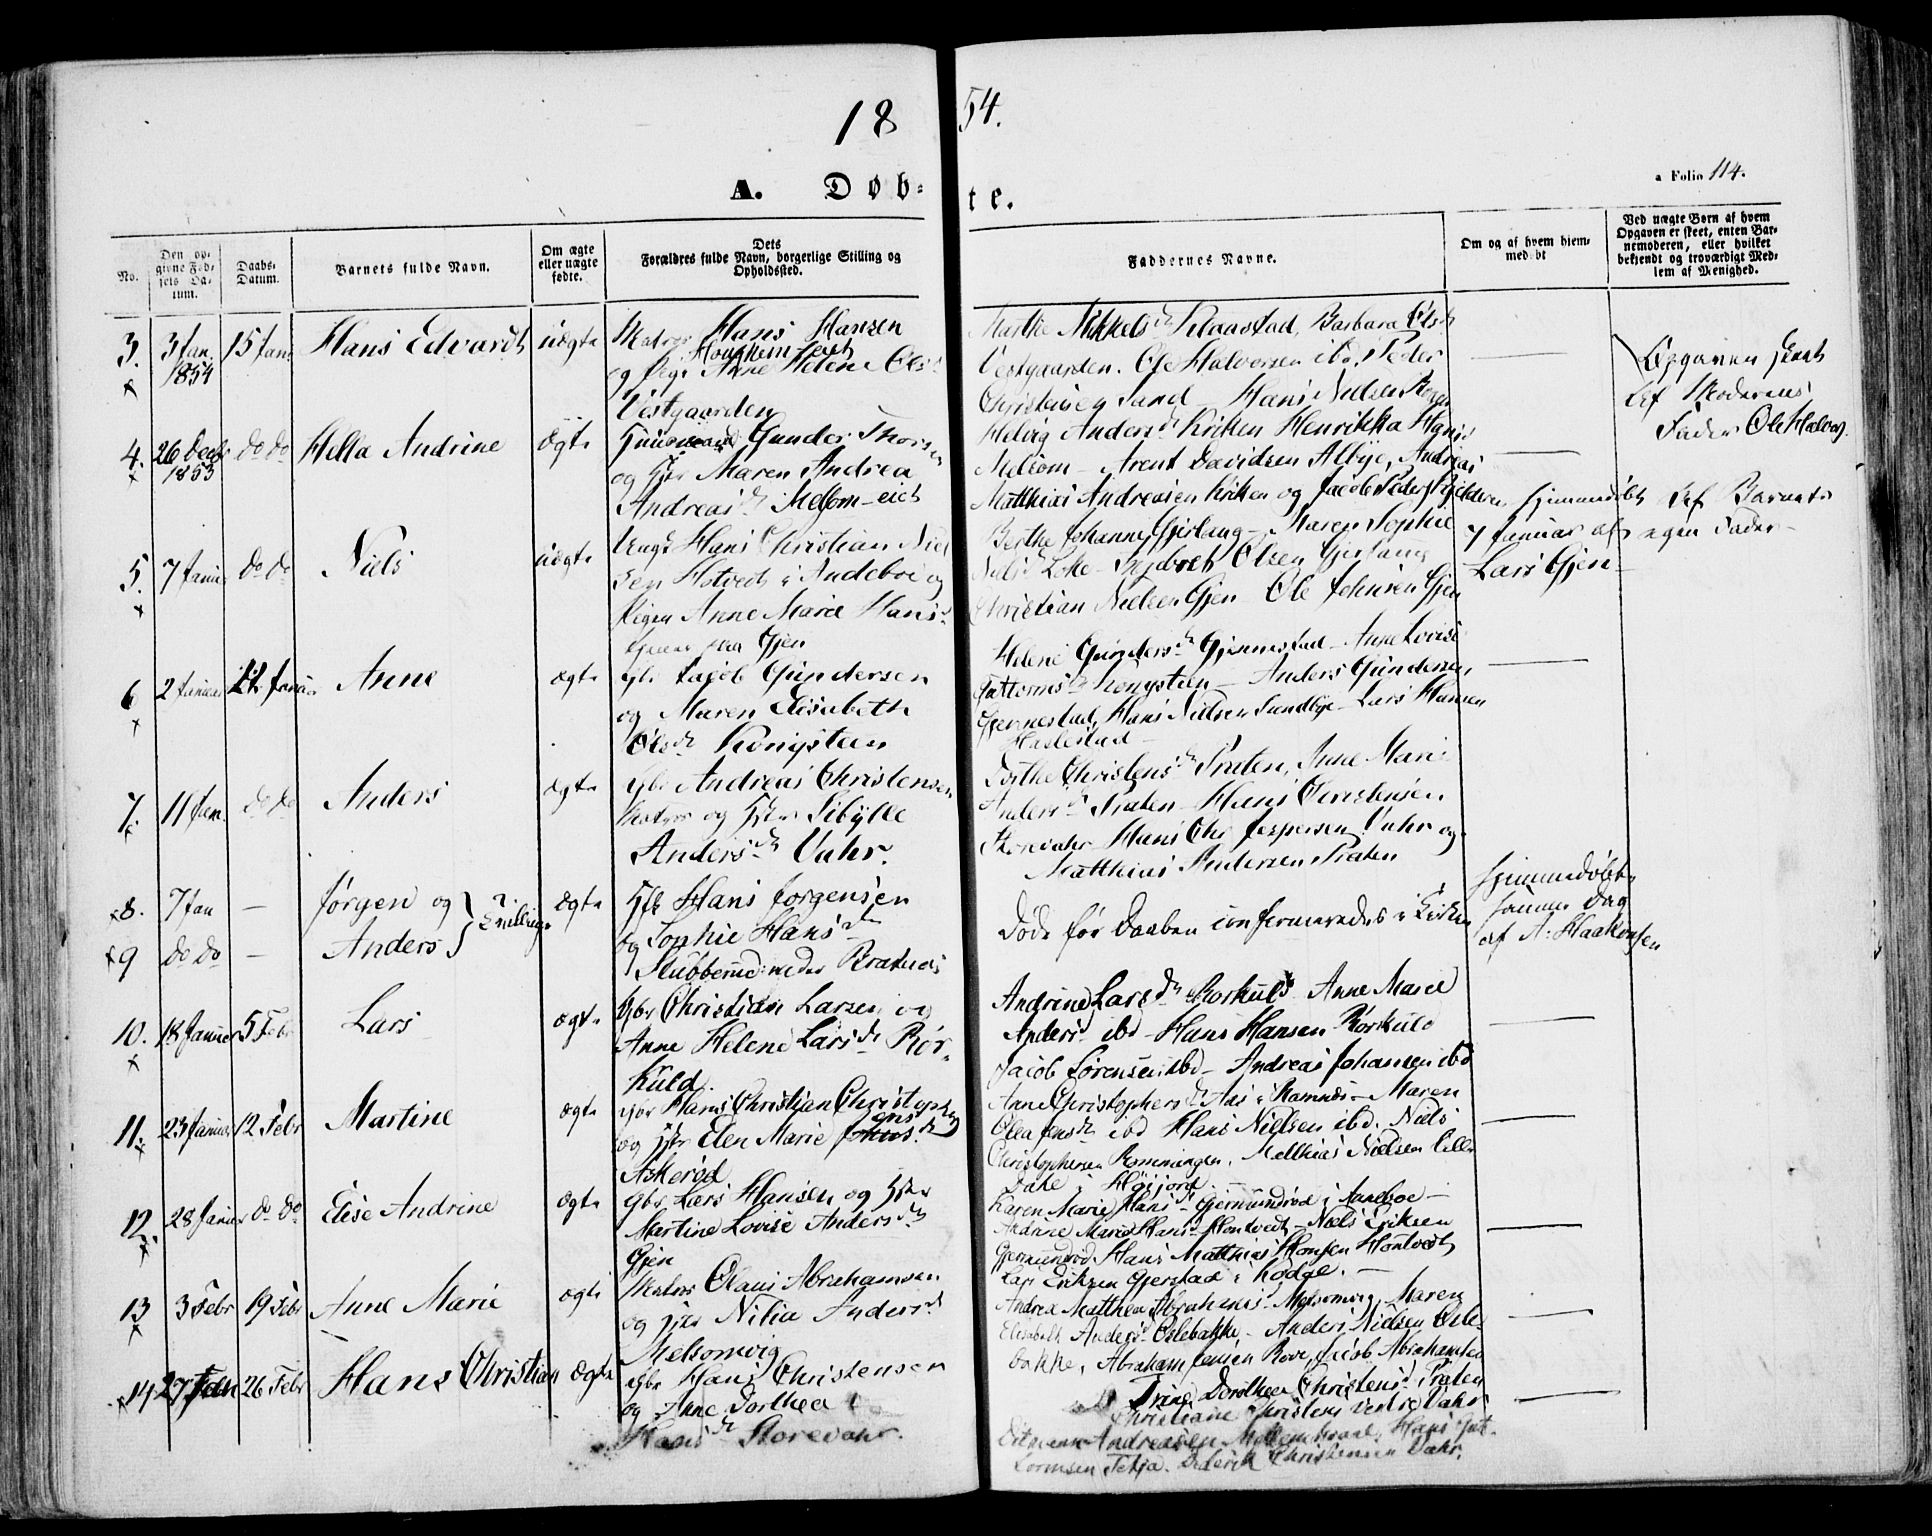 18 54.
a Folio 114.
A. Døb= te.
No.
Den op-
givne Fød-
sels Da-
tum.
Daabs-
Datum.
Barnets fulde Navn.
Om ægte
eller uægte
fødte.
Dets
Forældres fulde Navn, borgerlige Stilling og
Opholdssted.
Faddernes Navne.
Om og af hvem hjem-
medøbt
Ved uægte Børn af hvem
Opgaven er skeet, enten Bar-
nemoderen, eller hvilket
bekjendt og troværdigt Med-
lem af Menighed.
3. 3 Jan. 15 Jan Hans Edvardt uægte Matros Hans Hansen
1854
og Pige Anne Helene Ols
Vestgaarden
Marthe Mikkelsd Klaastad, Barbara Ols
Vestgaarden. Ole Halvorsen ibd. Peder
Christensen Sand - Hans Nielsen
Opgaven skeet
af Moderens
Fader Ole Halvors.
4. 26 Decbr do do Hella Andrine ægte Gunder Thorsen
1853
og Hst Maren Andrea
Andreasd Melsom-eiet
Helvig Andersd Kirken Henrikka Hans
Melsom - Arent Davidsen Albye, Andreas
Matthias Andreasen Kirken og Jacob Peders
5. 7 Januar do do Niels uægte Ungk Hans Christian Niel
sen Hotvedt i Andeboe og
Pigen Anne Marie Hansd
fra Gjen
Berthe Johanne Gjerlaug - Maren Sophie
Nielsd Loke - Ingebret Olsen Gjerlaug
Christian Nielsen Gjen - Ole Johnsen Gjen
Hjemmedøbt
7 Januar af
Lars Gjen
Af Barnets
egen Fader -
6 2 Januar Januar Anne ægte Gbr Jacob Gundersen
og Maren Elisabeth
Olsd Kongsteen
Helene Gundersd Gjennestad - Anne Lovise
Guttormsd Kongsteen - Anders Gundersen
Gjennestad, Hans Nielsen Sundbye - Lars Hansen
Haslestad -
7. 11 Jan. do do Anders ægte Gbr Andreas Christensen
Matros og Hst Sibylle
Andersd Vahr.
Dorthe Christensd Præten, Anne Marie
Andersd Præten - Hans Christensen
Storevahr Hans Chr Jespersen Vahr og
Matthias Andersen Præten
8. 7 Jan - Jørgen og } 2 Tvillinger ægte Hans Jørgensen
9 do do - Anders
og Sophie Hansd
Stubberud Bratnæs
Døde før Daaben confermeredes i Kirken
Hjemmedøbte
samme Dag
af A. Haakonsen
10. 18 Januar 5 Febr Lars ægte Gbr Christian Larsen og
Anne Helene Larsd Rør-
kuld.
Andrine Larsd Rørkuld Anne Marie
Andersd ibd - Hans Hansen Rørkuld
Jacob Sørensen ibd - Andreas Johansen ibd
11. 23 Januar 12 Febr Martine ægte Gbr Hans Christian Christophersen
og Hst Elen Marie Jensd
Askerød
Anne Christophersd Aas i Ramnæs - Maren
Olea Jensd ibd Hans Nielsen ibd. Niels
Christophersen Rømmingen, Matthias Nielsen Lille
Dahl i Høijord
12. 28 Januar do do Elise Andrine ægte Gbr Lars Hansen og Hst
Martine Lovise Andersd
Gjen
Karen Marie Hansd Gjermundrød i Andeboe -
Andrine Marie Hansd Hontvedt - Niels Eriksen
Gjermundrød Hans Matthias Hansen Hontvedt
Lars Eriksen Gjerstad i Kodge. -
13 3 Febr 19 Febr Anne Marie ægte Matros Olaus Abrahamsen
og Hst Nilia Andersd
Melsomvig
Andrea Matthea Abrahamsd Melsomvig, Maren
Elisabeth Andersd Oslebakke - Anders Nielsen Osle-
bakke, Abraham Jensen Rove, Jacob Abrahamsen
14 26 Febr Hans Christian ægte Gbr Hans Christensen
og Anne Dorthea
Hansd Storevahr.
Trine Dorthea Christensd Præten
Christiane Christensd Vestre Vahr
Ditmann Andreasen, Hans Gut-
tormsen Tekja. Diderik Christensen Vahr.